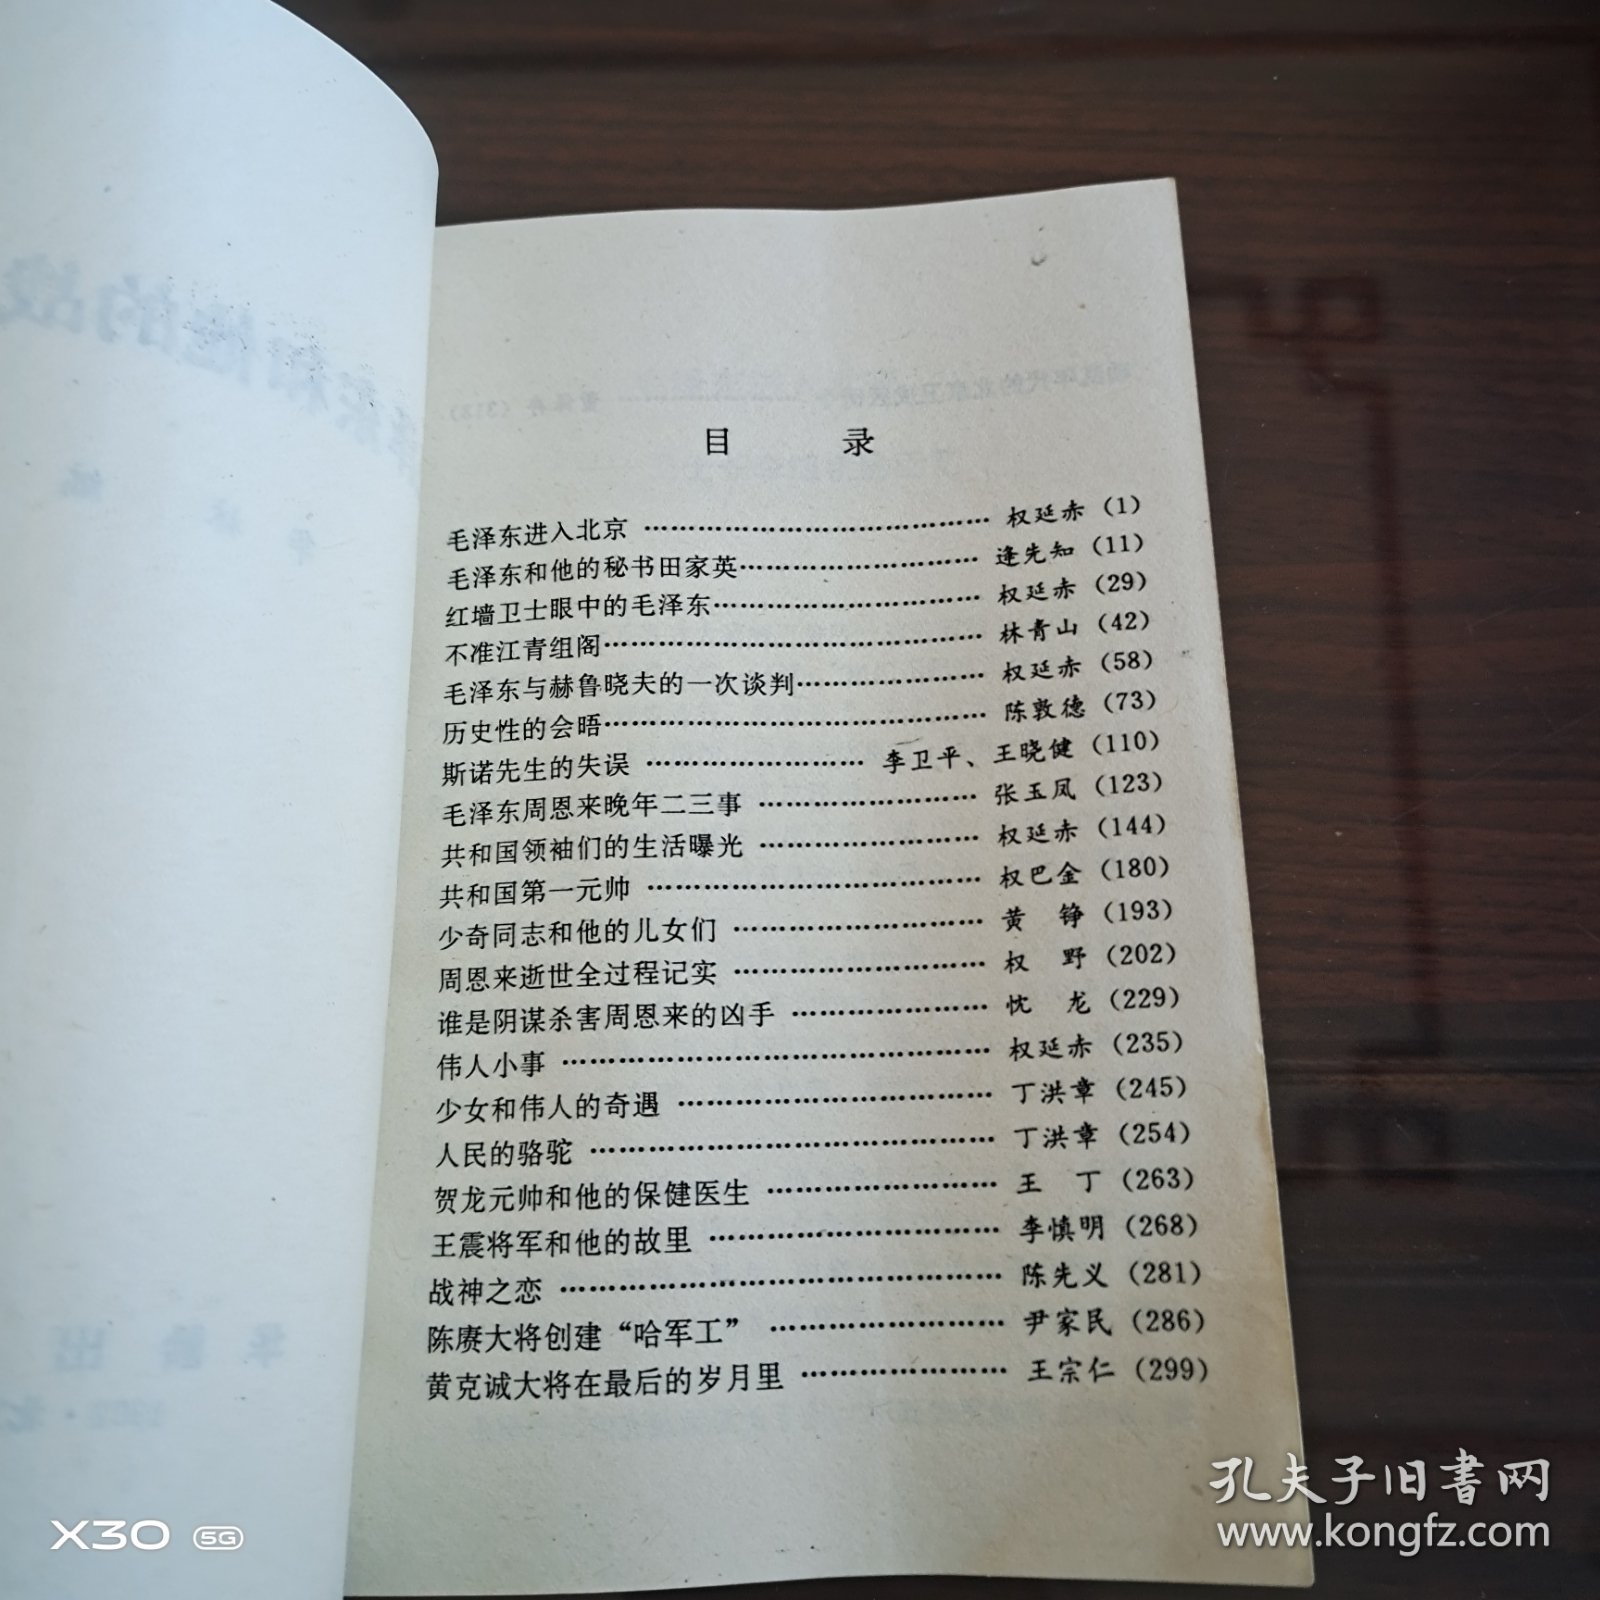 目 录
毛泽东进入北京 …………………………………… 权延赤 (1)
毛泽东和他的秘书田家英………………………… 逄先知 (11)
红墙卫士眼中的毛泽东…………………………… 权延赤 (29)
不准江青组阁……………………………………… 林青山 (42)
毛泽东与赫鲁晓夫的一次谈判………………… 权延赤 (58)
历史性的会晤……………………………………… 陈敦德 (73)
斯诺先生的失误 …………………… 李卫平、王晓健 (110)
毛泽东周恩来晚年二三事 …………………… 张玉凤 (123)
共和国领袖们的生活曝光 …………………… 权延赤 (144)
共和国第一元帅 ……………………………… 权巴金 (180)
少奇同志和他的儿女们 ……………………… 黄 铮 (193)
周恩来逝世全过程记实 ……………………… 权 野 (202)
谁是阴谋杀害周恩来的凶手 ………………… 忱 龙 (229)
伟人小事 ……………………………………… 权延赤 (235)
少女和伟人的奇遇 …………………………… 丁洪章 (245)
人民的骆驼 …………………………………… 丁洪章 (254)
贺龙元帅和他的保健医生 …………………… 王 丁 (263)
王震将军和他的故里 ………………………… 李慎明 (268)
战神之恋 ……………………………………… 陈先义 (281)
陈赓大将创建“哈军工” …………………… 尹家民 (286)
黄克诚大将在最后的岁月里 ………………… 王宗仁 (299)
孔夫子旧书网
www.kongfz.com
X30 5G